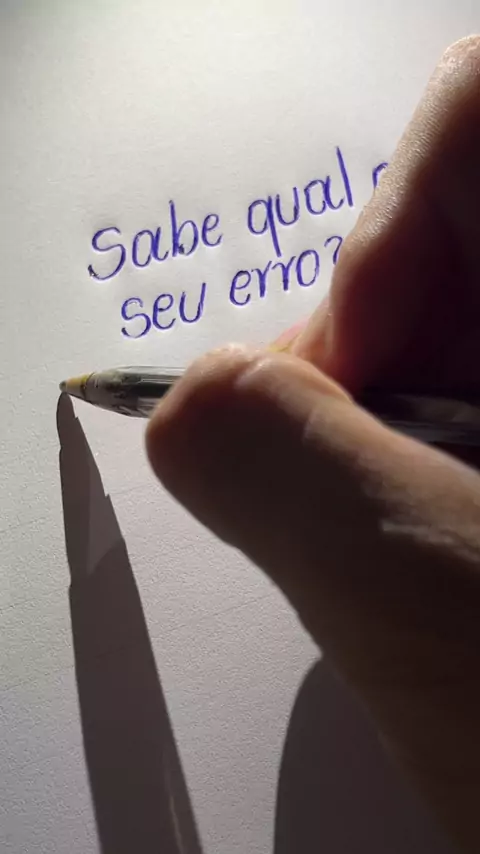 Sabe qual
seu erro?